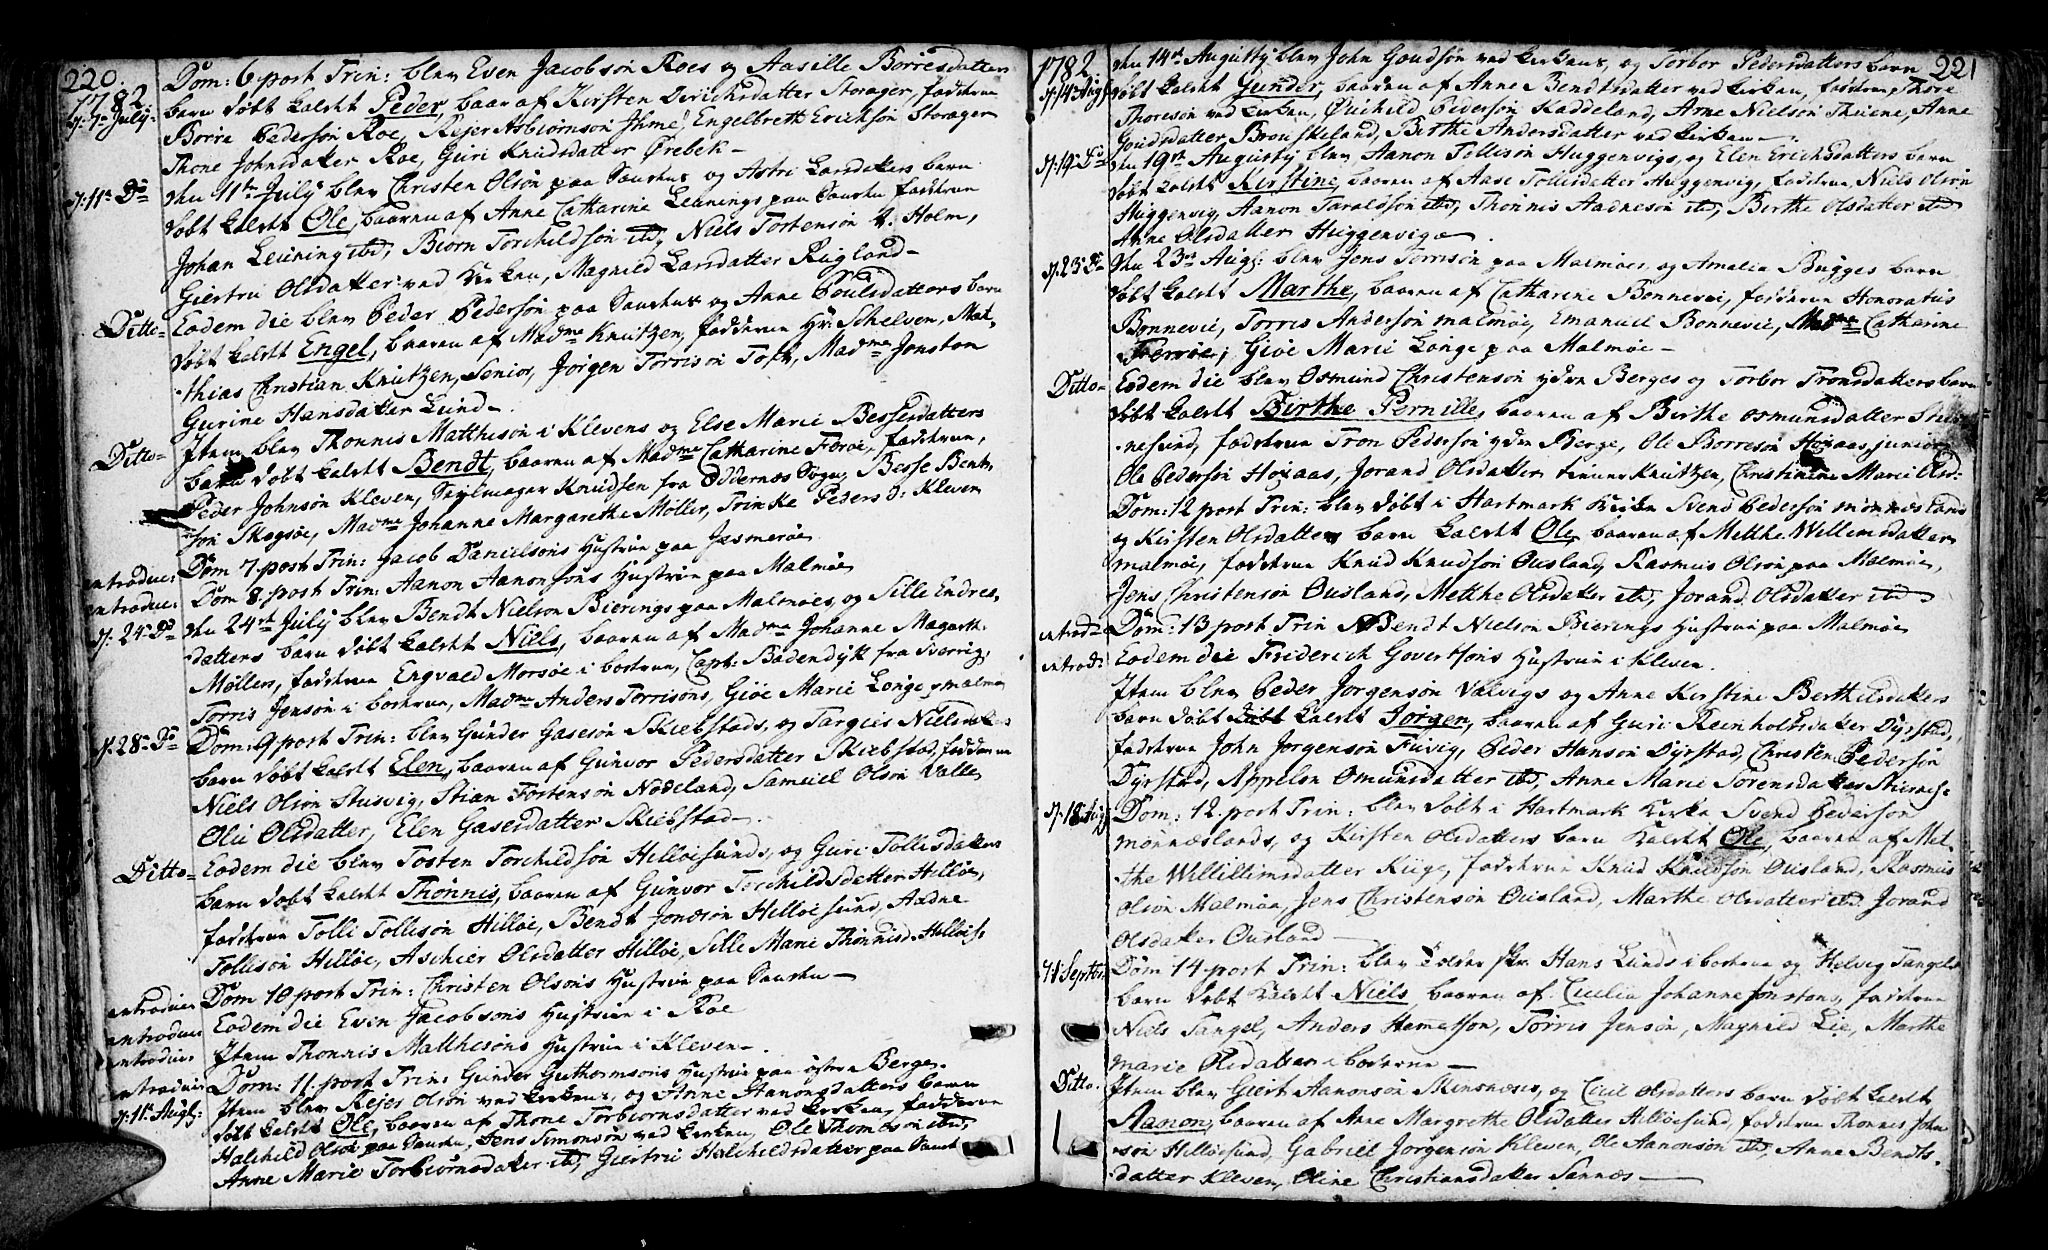 220.
1782
d: 7de July.
Dom: 6 post Trin: blev Even Jacobsön Roes og Aasille Börresdatters
barn döbt kaldet Peder, baaren af Kirsten Dirichsdatter Storager, fadderne
Börre Pedersön Roe, Rejer Asbiörnsön Ihme, Engelbreth Erichsön Storager
Thone Johnsdatter Roe, Guri Knudsdatter Örebek
d: 11te Do
den 11te July blev Christen Olsön paa og Astri Larsdatters barn
döbt kaldet Ole, baaren af Anne Catharine Leunings paa fadderne
Johan Leuning ibd, Biörn Torchildsön ibd, Niels Tortensön v. Holm,
Giertru Olsdatter ved Kirken, Magnild Larsdatter Rugland
Ditto
Eodem die blev Peder Pedersön paa og Anne Poulsdatters barn
döbt kaldet Engel, baaren af Madme Knutzen, fadderne Hr: Schelven, Mat-
thias Christian Knutzen, Senior, Jörgen Torrisön Toft, Madme Jonston
Gurine Hansdatter Lund
Ditto
Item blev Thonnis Matthisön i Klevens og Else Marie Bessesdatters
barn döbt kaldet Bendt, baaren af Madme Catharine Feröe, fadderne,
Peder Johnsön Kleven, Seylmager Knudsen fra Oddernæs Sogn, Besse Bent-
sön Skogsöe, Madme Johanne Margarethe Möller, Trinke Peders d: Kleven
introduc:
Dom 7 post Trin: Jacob Danielsöns Hustrue paa Jasmeröe
introduc:
Dom 8 post Trin: Aanon Aanonsöns Hustrue paa Malmöe
d: 24de Do
den 24de July blev Bendt Nielsön Bierings paa Malmöes, og Sille Endres
datters barn döbt kaldet Niels, baaren af Madme Johanne Magarth:
Möllers, fadderne Engvald Morsöe i boerne, Capt: Badendyk fra Sverrig,
Torris Jensön i boerne, Madme Anders Torrisöns, Giöe Marie Longe p Malmöe
d: 28de Do
Dom: 9 post Trin: blev Gunder Gasesön Skiebstads, og Targies Nielsdatters
barn döbt kaldet Elen, baaren af Gunvor Pedersdatter Skiebstad, fadderne
Niels Olsön Stusvig, Stian Tortensön Nödeland, Samuel Olsön Valle
Olu Olsdatter, Elen Gasesdatter Skiebstad
Ditto
Eodem die blev Tosten Torchildsön Hillöesunds, og Guri Tollisdatters
barn döbt kaldet Thönnis, baaren af Gunvor Torchildsdatter Hillöe,
fadderne Tolli Tollisön Hillöe, Bendt Jonasön Hillöesund, Aadne
Tollisön Hillöe, Aschier Olsdatter Hillöe, Sille Marie Thönnisd. Hillöes:
introduc:
Dom 10 post Trin: Christen Olsöns Hustrue paa
introduc:
Eodem die Even Jacobsöns Hustrue i Roe
introduc:
Item Thonnis Matthesöns Hustrue i Kleven
introduc:
Dom: 11 post Trin: Gunder Guthormsöns Hustrue paa östre Berge.
d: 11te Augs:
Item blev Rejer Olsön ved kirkens, og Anne Hanongdatters barn
döbt kaldet Ole, baaren af Thone Torbiornsdatter ved kirken, fadderne
Halchild Olsön paa Jens Simonsön ved kirken, Ole Thomesön ibd,
Anne Marie Torbiörnsdatter ibd, Giertrue Halchildsdatter paa
221
1782
d: 14de Augs
den 14de Augusty blev John Goudsön ved kirkens, og Torbor Pedersdatters barn
döbt kaldet Gunder, baaren af Anne Bendtsdatter ved kirken, fadderne, Thore
Thoresön ved kirken, Öuchild Pedersön Kaddeland, Arne Nielsön Thuene, Anne
Goudsdatter Brouskeland, Birthe Andersdatter ved kirken.
d: 19de Do
den 19de Augusty blev Aanon Tollisön Huggenvigs, og Elen Erichsdatters barn
döbt kaldet Kirstine, baaren af Aase Tollisdatter Huggenvig, fadderne, Niels Olsön
Huggenvig, Aanon Taraldsön ibd, Thönnis Aadnesön ibd, Birthe Olsdatter ibd
Anne Olsdatter Huggenvig.
d. 23de Do
den 23de Augs: blev Jens Torrisön paa Malmöes, og Amalia Bugges barn
döbt kaldet Marthe, baaren af Catharine Bonnevie, fadderne Honoratius
Bonnevie, Torris Andersön malmöe, Emanuel Bonnevie, Madme Catharine
Feröe, Giöe Marie Longe paa Malmöe
Ditto
Eodem die blev Osmund Christensön ydre Berges og Torbor Tronsdatters barn
döbt kaldet Birthe Pernille, baaren af Birthe Osmunsdatter
nesund, fadderne Tron Pedersön ydre Berge, Ole Börresön Höyaas junior,
Ole Pedersön Höyaas, Jorand Olsdatter Knutzen, Christinine Marie Olsd:
Dom: 12 post Trin: blev döbt i Hartmark Kirke Svend Pedersön mönnesland
og Kirsten Olsdatters barn kaldet Ole, baaren af Metthe Willemsdatter
malmöe, fadderne Knud Knudsön Ousland, Rasmus Olsön paa Malmöe,
Jens Christensön Ousland, Metthe Olsdatter ibd, Jorand Olsdatter ibd
introd:
Dom: 13 post Trin Bendt Nielsön Bierings Hustrue paa Malmöe
introd:
Eodem die Friderich Govertsöns Hustrue i Kleven.
Item blev Peder Jörgensön Valvigs og Anne Kirstine Berthelsdatters
barn döbt döbt kaldet Jörgen, baaren af Guri Reinholtsdatter Dyrstad,
fadderne John Jörgensön Fuvig, Peder Hansön Dyrstad, Christen Pedersön
Dyrstad, Appelön Omunsdatter ibd, Anne Marie Sörensdatter Stiernes:
d. 18 Augs
Dom: 12 post Trin: blev döbt i Hartmark Kirke Svend Pedersön
mönneslands, og Kirsten Olsdatters barn kaldet Ole, baaren af Met-
the Willumsdatter Kiige, fadderne Knud Knudsön Ousland, Rasmus
Olsön Malmöe, Jens Christensön Ousland, Marthe Olsdatter ibd. Jorand
Olsdatter Ousland
d 1 Septbr
Dom 14 post Trin: blev Hans Lunds i boerne og Helvig Tangels
barn döbt kaldet Niels, baaren af Cicilia Johanne Jonstons, fadderne
Niels Tangel, Anders Hametsön, Torris Jensön, Magnild Lie, Marthe
marie Olsdatter i boerne
Ditto.
Item blev Giert Aanonsön Skinsnæses, og Cicil Olsdatters barn döbt kaldet
Aanon, baaren af Anne Margrethe Olsdatter Hillöesund, fadderne Thonnis John
sön Hillöesund, Gabriel Jörgensön Kleven, Ole Aanonsön ibd, Anne Bendts-
datter Kleven, Oline Christiansdatter Sannæs